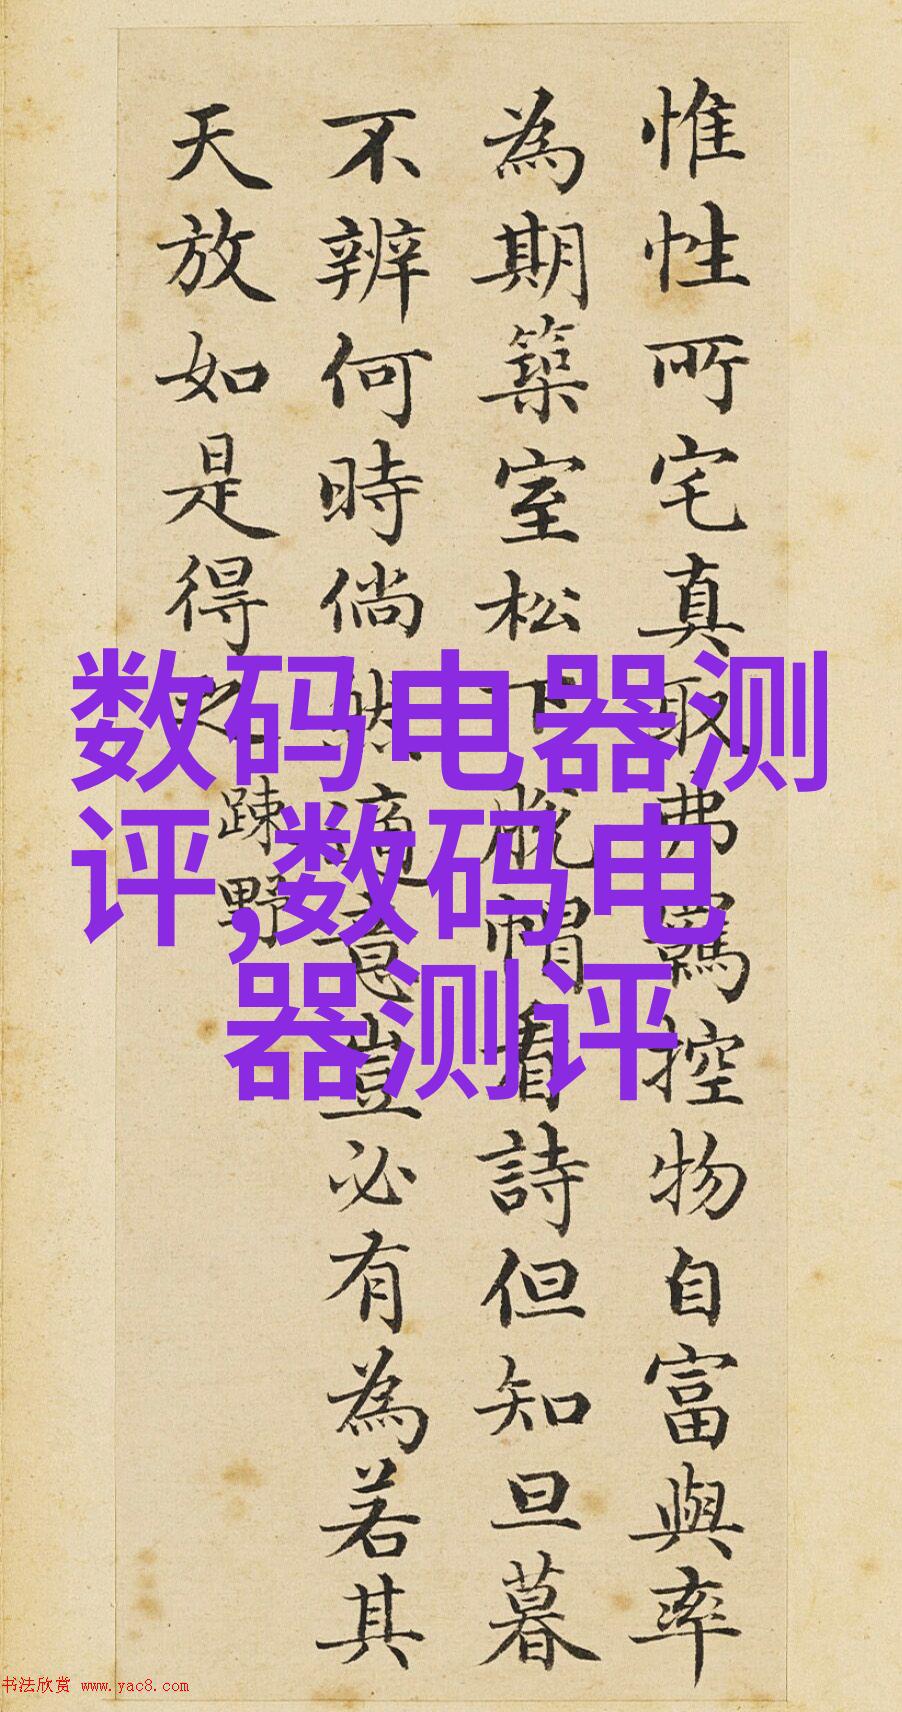 惟性所宅真取弗羈控物自富與率
為期築室松下脫帽看詩但知旦暮
不辨何時倘然適意豈必有為若其
天放如是得之
疎野
数码电器测
评,数码电
器测评
书法欣赏 www.yac8.com